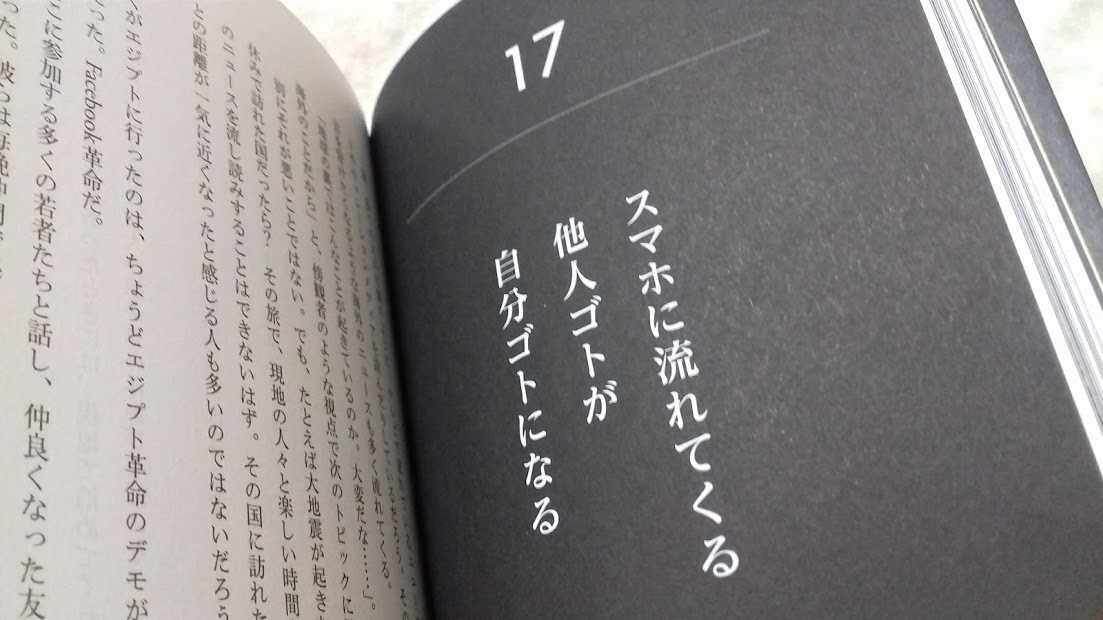 17
スマホに流れてくる
他人ゴトが
自分ゴトになる
海外のニュースも多く流れてくる。
こんなことが起きているのか。大変だな……」。
海外のことだから」と、傍観者のような視点で次のトピックに
別にそれが悪いことではない。でも、たとえば大地震が起き
休みで訪れた国だったら? その旅で、現地の人々と楽しい時間
のニュースを流し読みすることはできないはず。その国に訪れた
との距離が一気に近くなったと感じる人も多いのではないだろう
がエジプトに行ったのは、ちょうどエジプト革命のデモが
った。Facebook革命だ。
こに参加する多くの若者たちと話し、仲良くなった友
った。彼らは毎晩